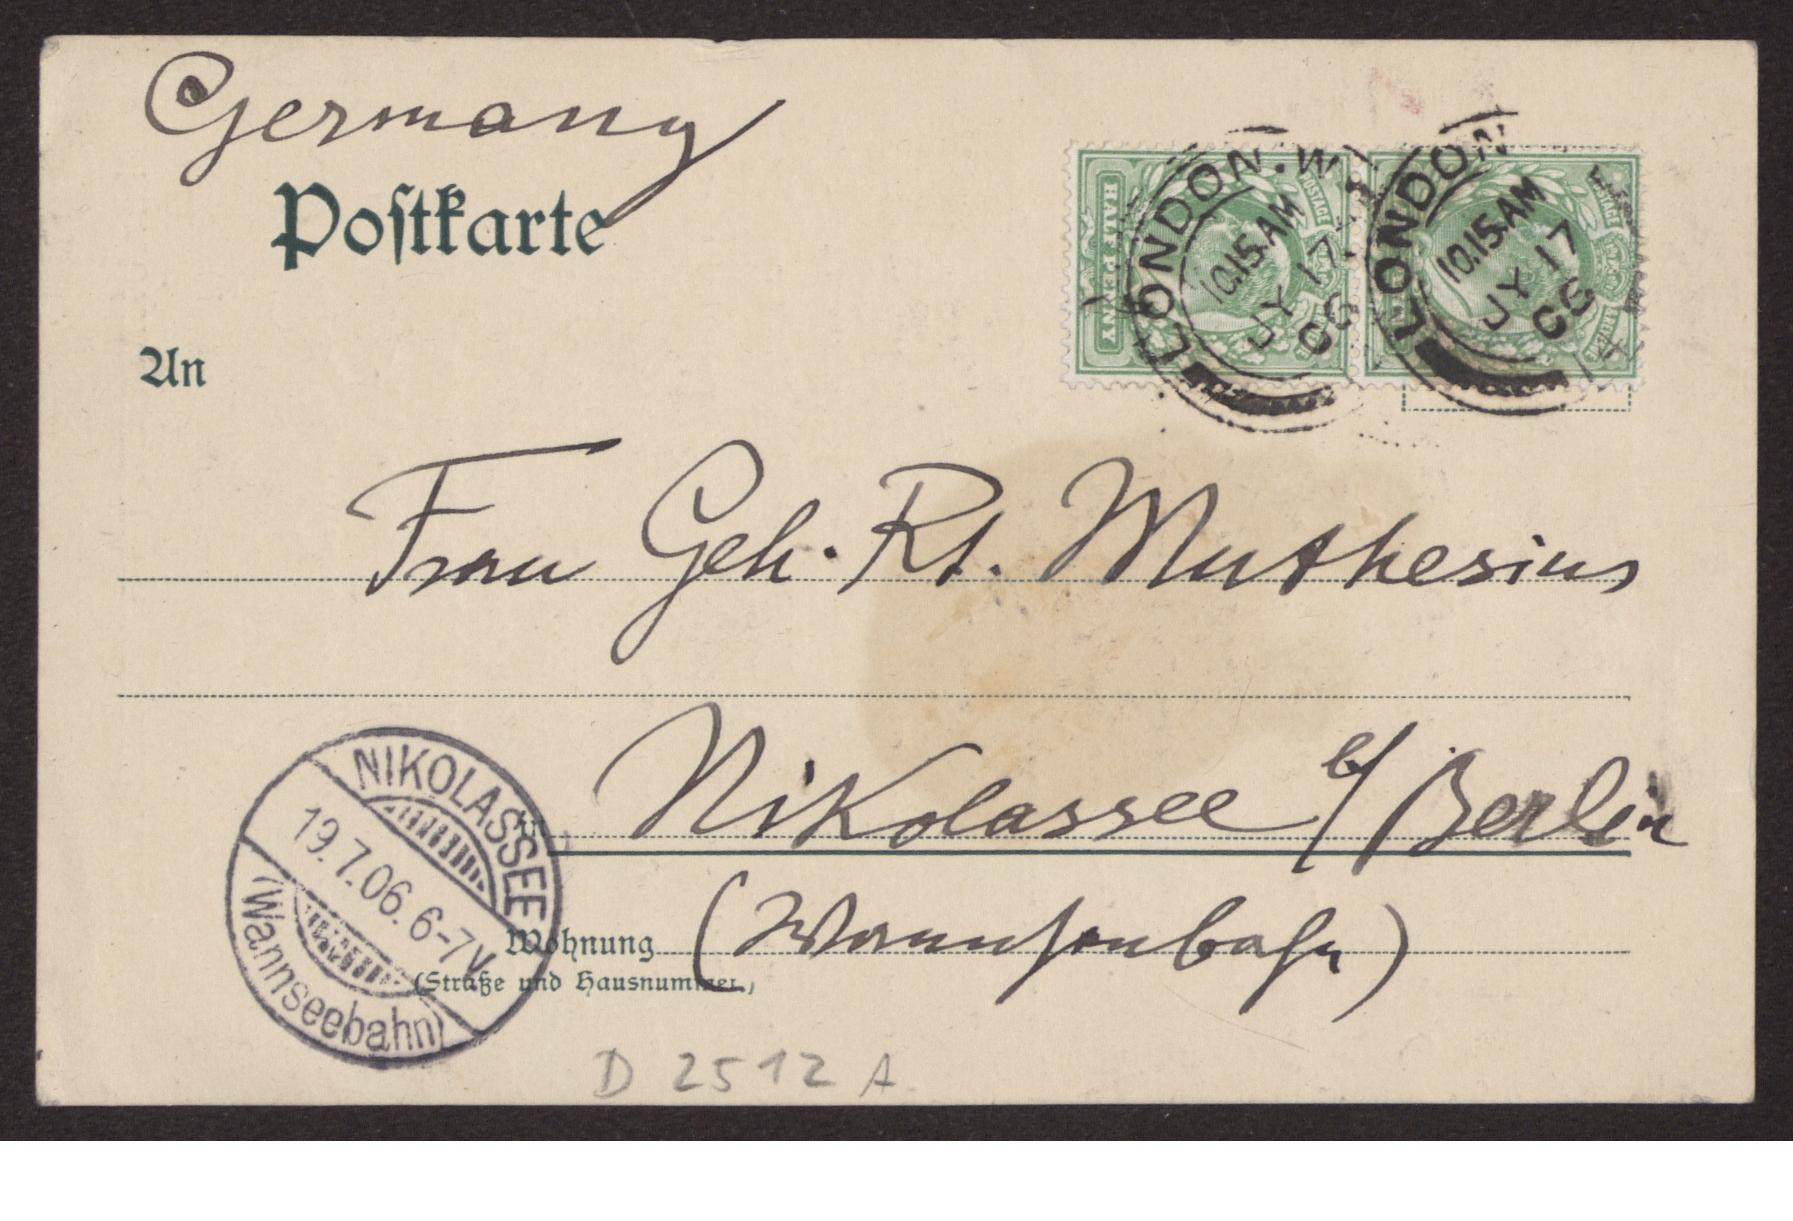 Germany
Postkarte
LONDON.W
10.15.AM
JY 17
06
LONDON
10.15.AM
JY 17
06
POSTAGE
POSTAGE
HALF PENNY
An
Frau Geh. Rt. Muthesius
Nikolassee b/ Berlin
NIKOLASSEE
19.7.06. 6-7V
(Wannseebahn)
Wohnung (Wannseebahn)
(Straße und Hausnummer)
D 2512 A